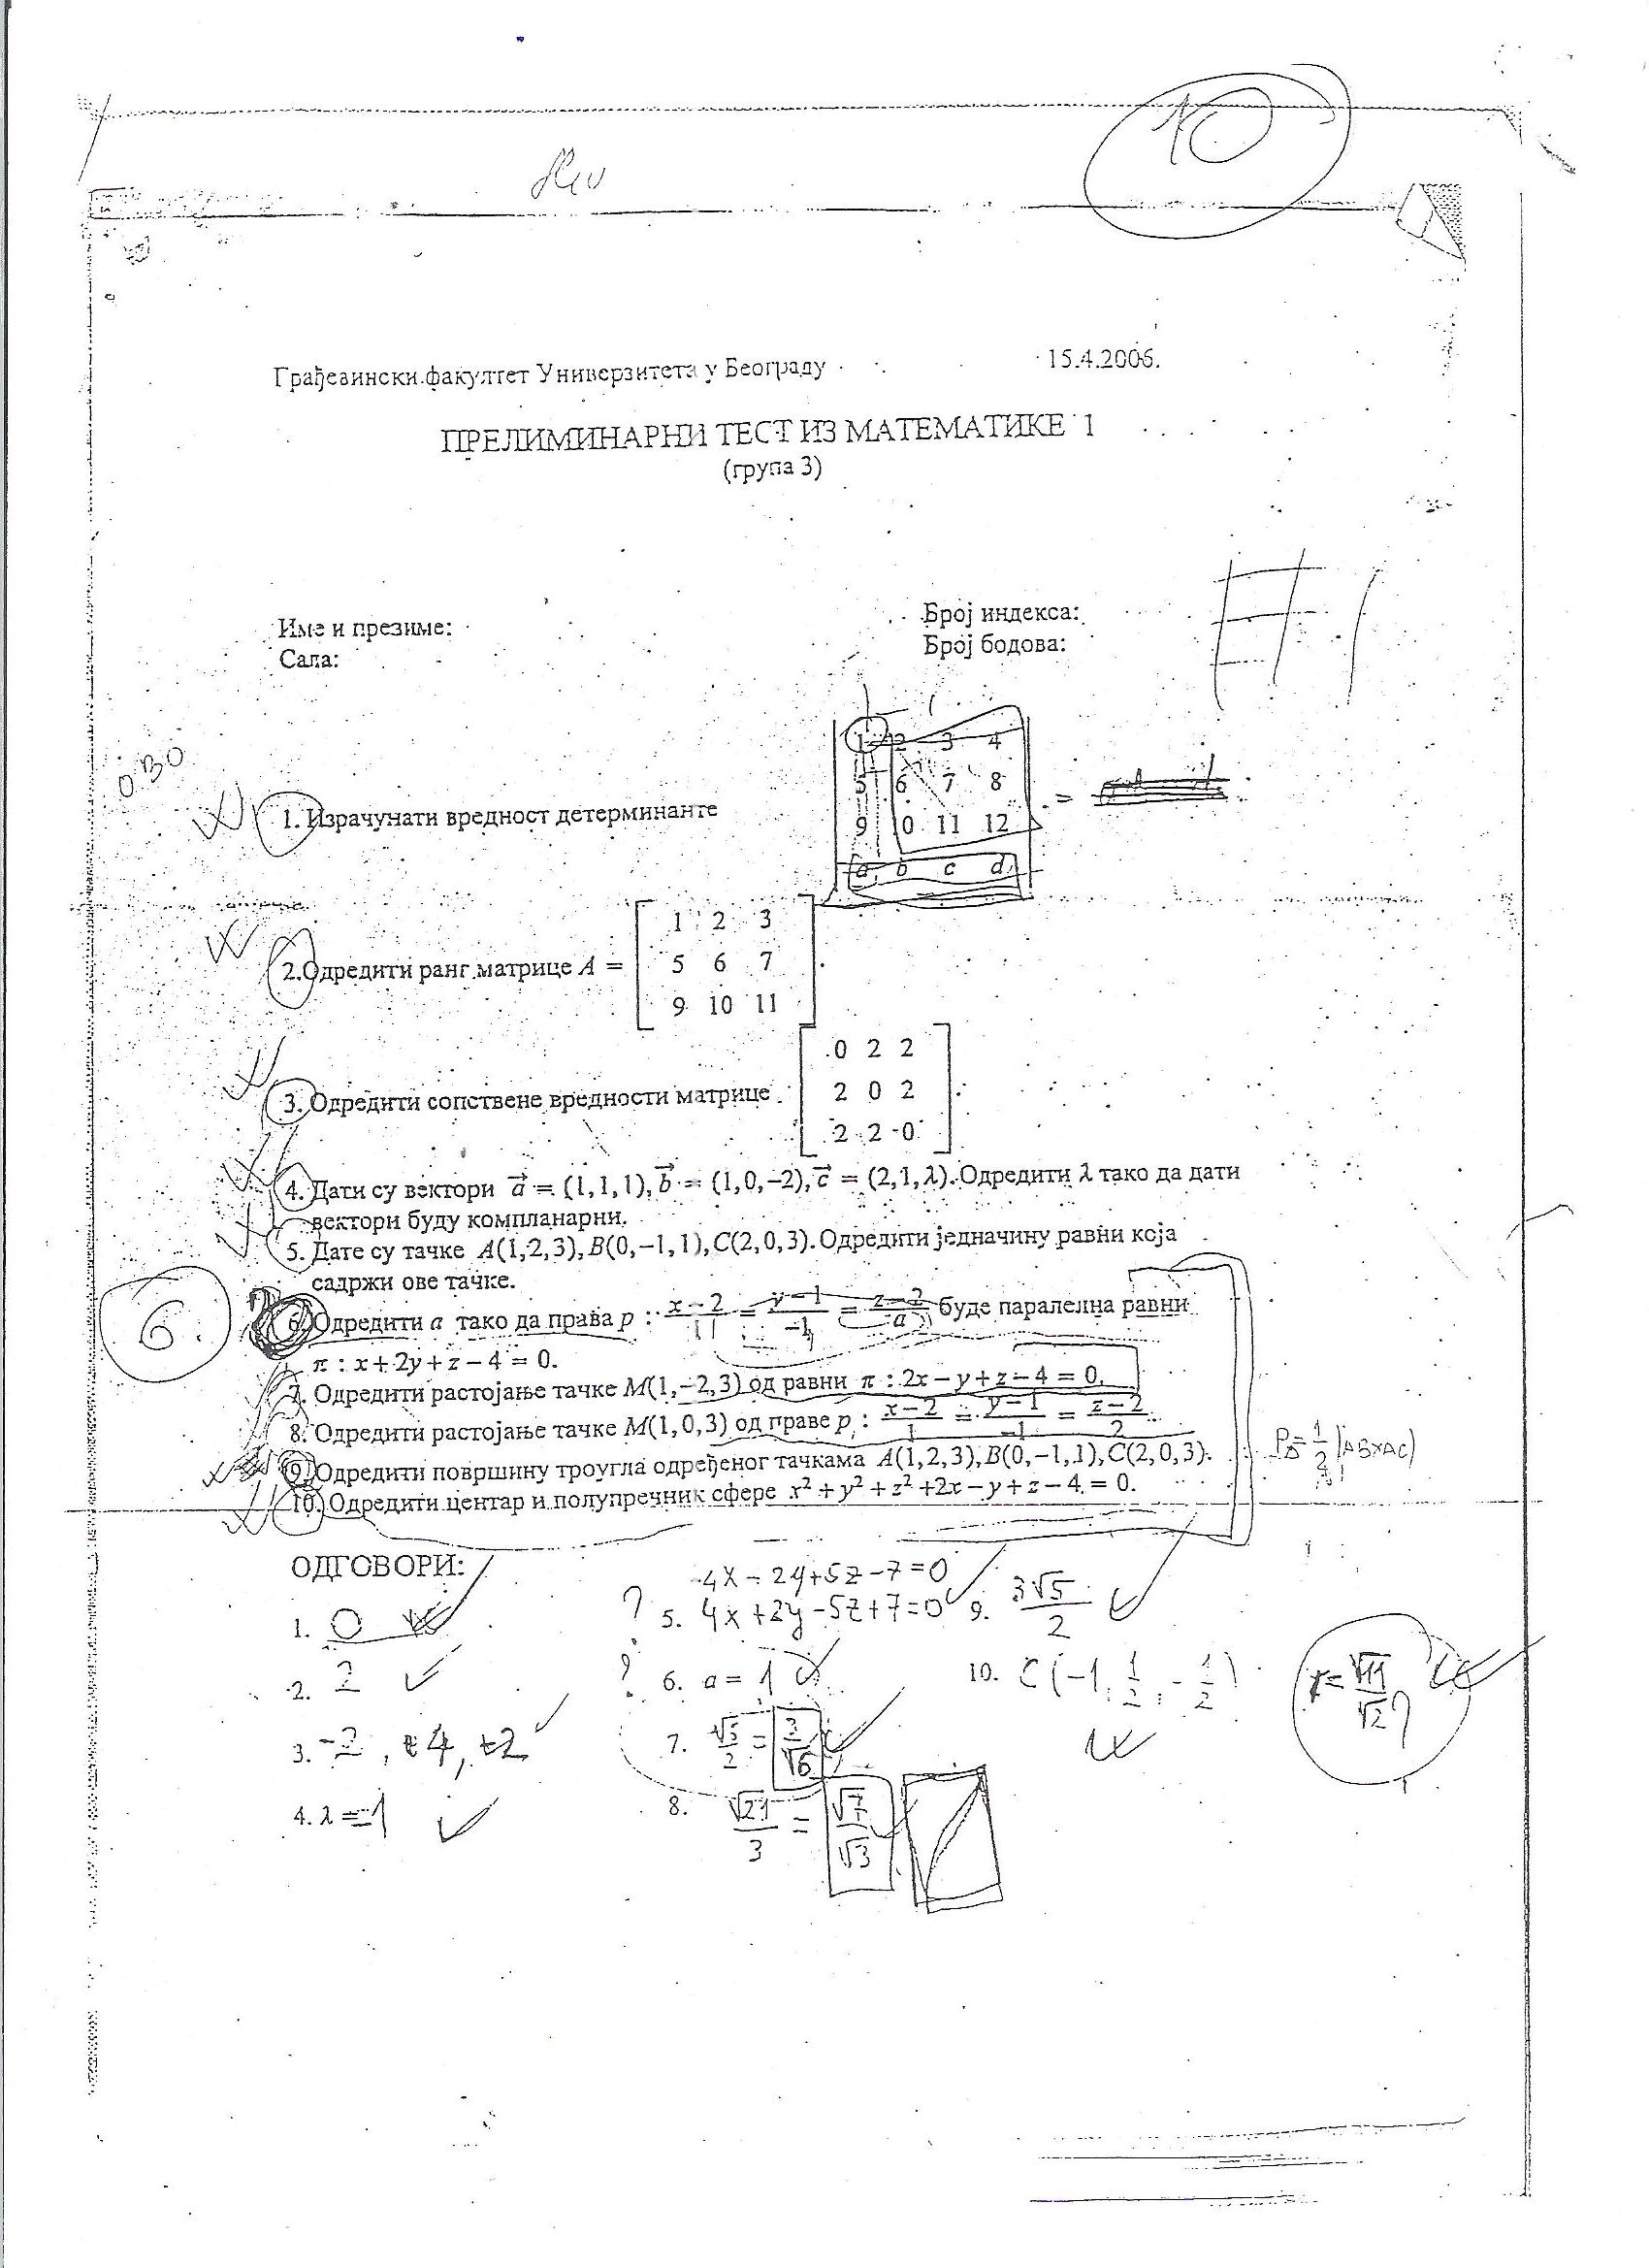 10
Грађевински факултет Универзитета у Београду 15.4.2006.
ПРЕЛИМИНАРНИ ТЕСТ ИЗ МАТЕМАТИКЕ 1
(група 3)
Име и презиме: Број индекса:
Сала: Број бодова:
1 2 3 4
5 6 7 8
1. Израчунати вредност детерминанте =
9 10 11 12
a b c d
1 2 3
2. Одредити ранг матрице A = 5 6 7 .
9 10 11
0 2 2
3. Одредити сопствене вредности матрице 2 0 2 .
2 2 0
4. Дати су вектори a⃗ = (1,1,1), b⃗ = (1,0,−2), c⃗ = (2,1,λ). Одредити λ тако да дати
вектори буду компланарни.
5. Дате су тачке A(1,2,3), B(0,−1,1), C(2,0,3). Одредити једначину равни која
садржи ове тачке.
6. 6. Одредити a тако да права p : (x−2)/1 = (y−1)/−1 = (z−2)/a буде паралелна равни
π : x + 2y + z − 4 = 0.
7. Одредити растојање тачке M(1,−2,3) од равни π : 2x − y + z − 4 = 0.
8. Одредити растојање тачке M(1,0,3) од праве p : (x−2)/1 = (y−1)/−1 = (z−2)/2.
9. Одредити површину троугла одређеног тачкама A(1,2,3), B(0,−1,1), C(2,0,3). P△ = 1/2 |AB×AC|
10. Одредити центар и полупречник сфере x² + y² + z² + 2x − y + z − 4 = 0.
ОДГОВОРИ:
-4x - 2y + 5z - 7 = 0
1. 0 ? 5. 4x + 2y - 5z + 7 = 0 9. 3√5/2
2. 2 ? 6. a = 1 10. C(-1, 1/2, -1/2) r = √11/√2 ?
3. -2, 4, -2 7. = 3/√6
4. λ = -1 8. √21/3 = √7/√3